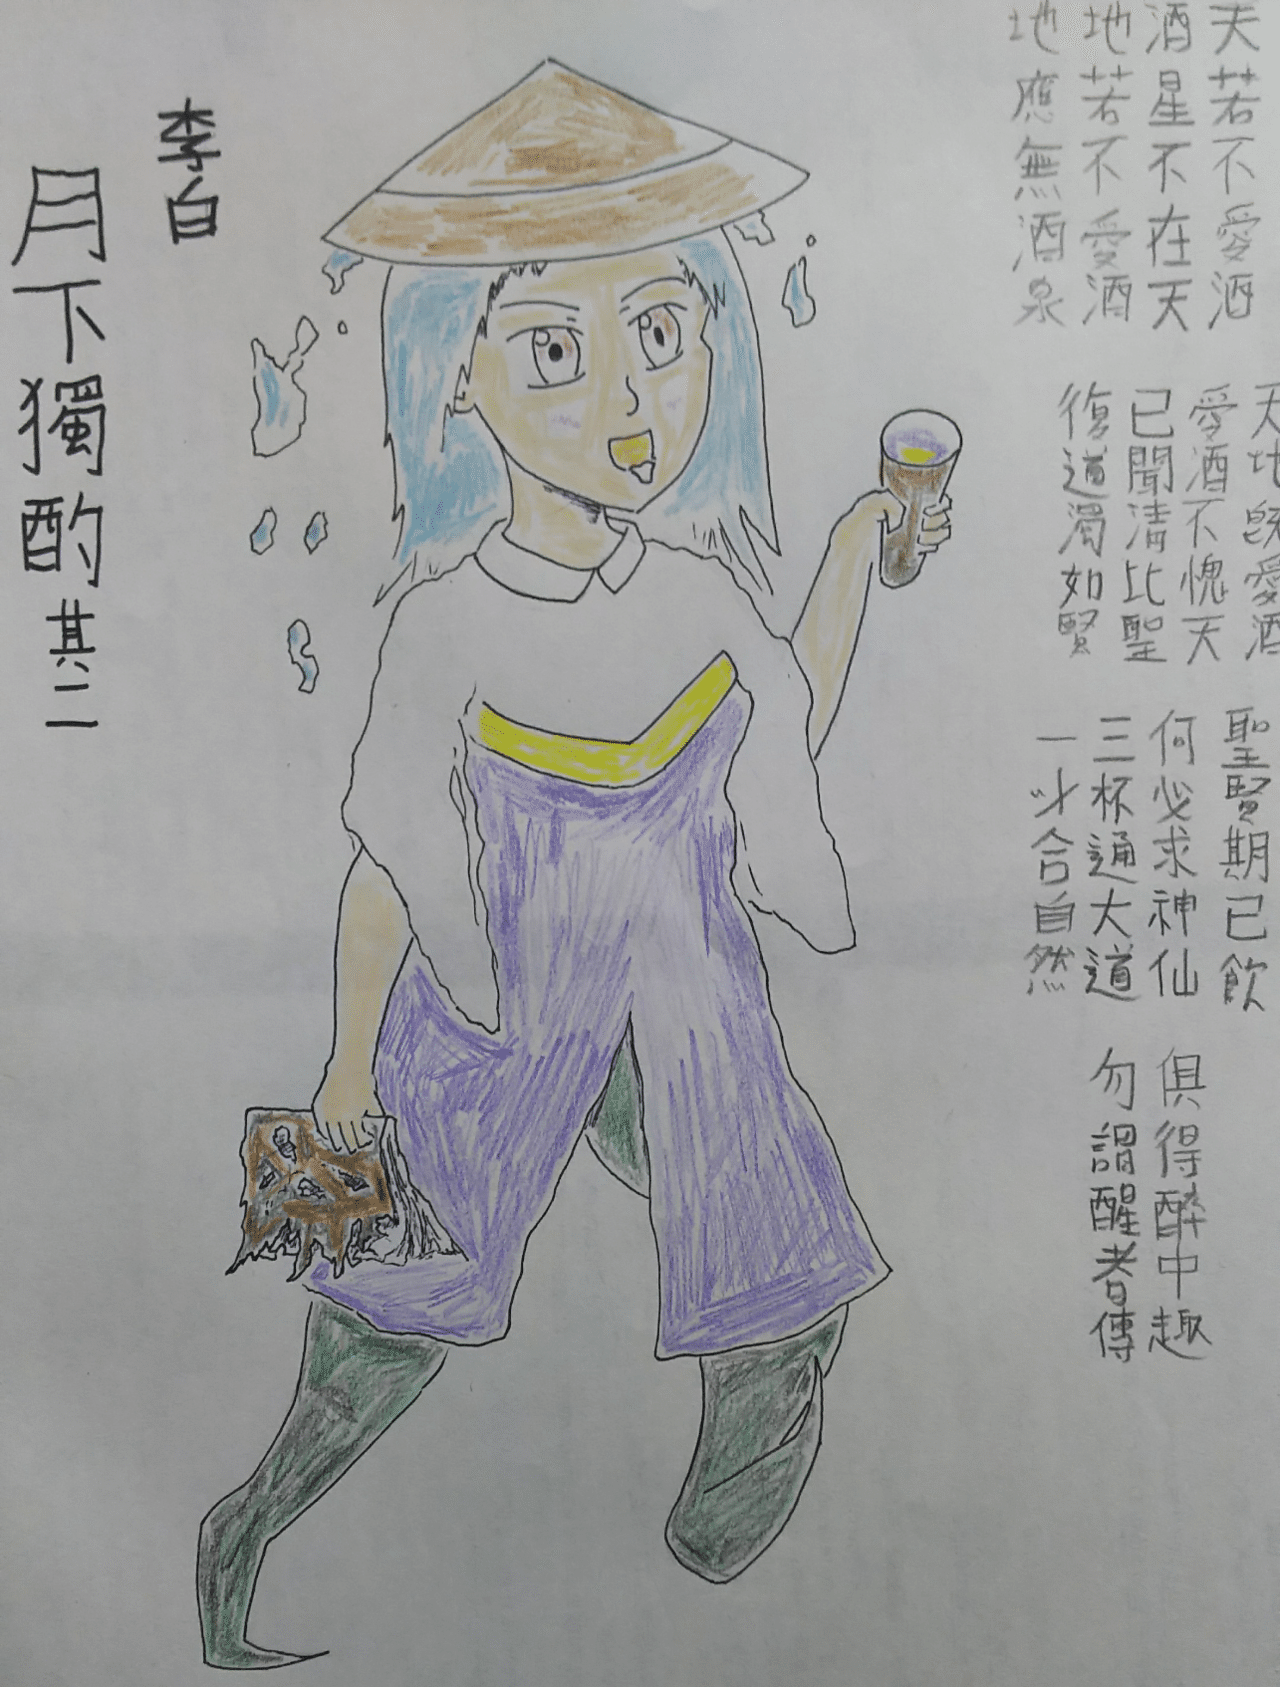 天若不愛酒
酒星不在天
地若不愛酒
地應無酒泉
天地既愛酒
愛酒不愧天
已聞清比聖
復道濁如賢
聖賢期已飲
何必求神仙
三杯通大道
一斗合自然
俱得酔中趣
勿謂醒者傳
李白
月下獨酌其二